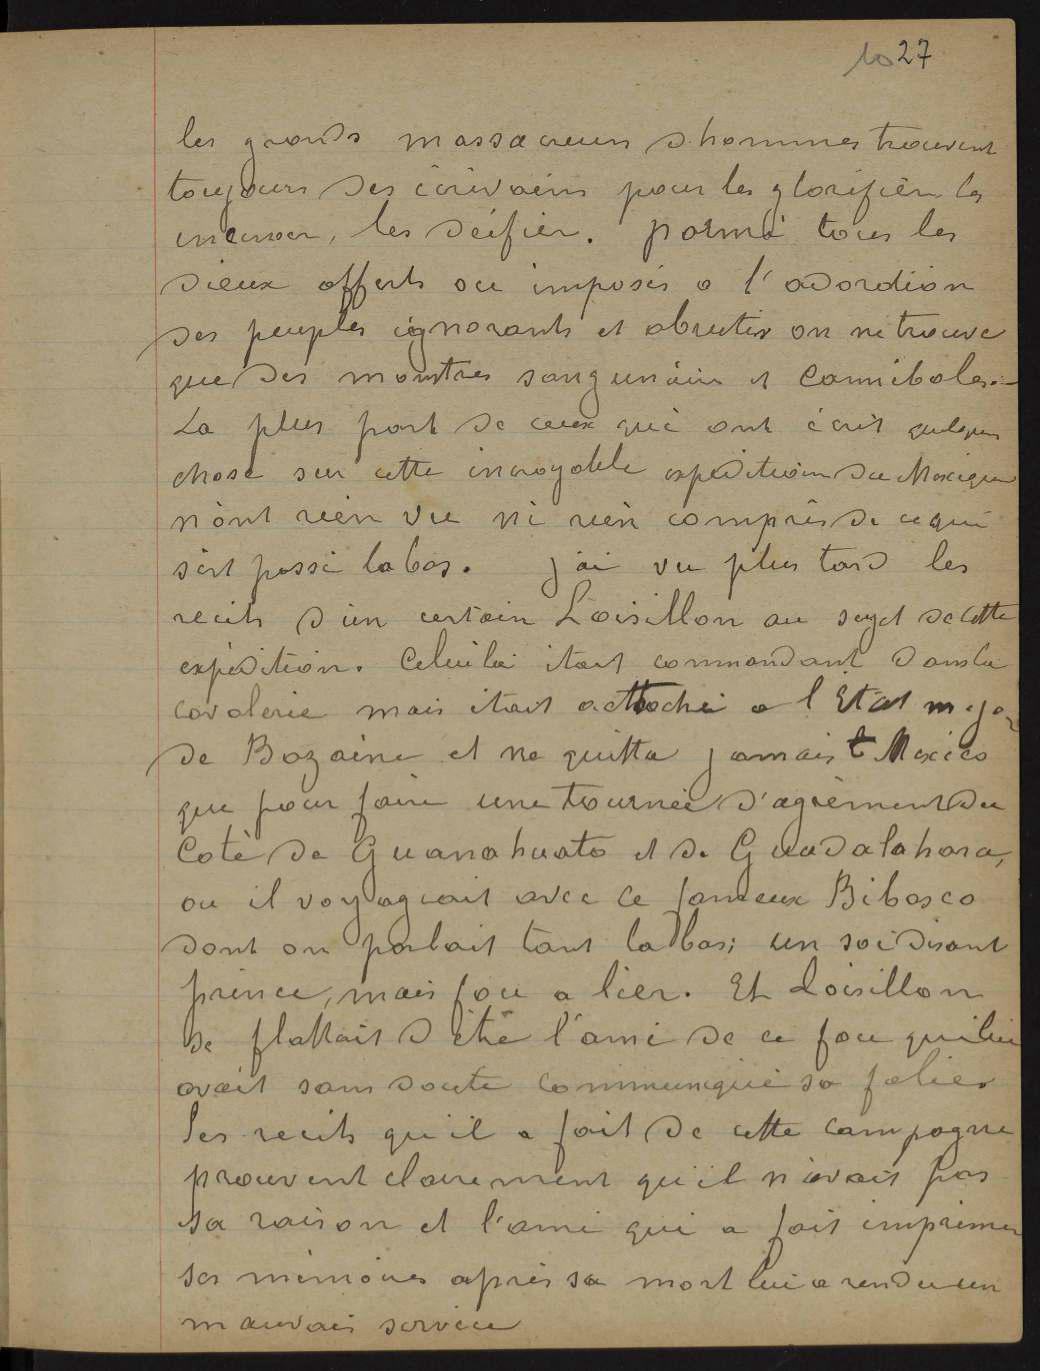 1027
les grands massacreurs d'hommes trouvent
toujours des écrivains pour les glorifièr les
encenser, les déifièr. parmi tous les
dieux offerts ou imposés a l'adoration
des peuples ignorants et abrutis on ne trouve
que des monstres sanguinaire et Cannibales.
La plus part de ceux qui ont écrit quelques
chose sur cette incroyable expédition du Mexique
n'ont rien vu ni rien compris de ce qui
s'est passé labas. j'ai vu plus tard les
recits d'un certain Loisillon au sujet de cette
expédition. Celui la était commandant dans la
cavalerie mais était attaché a l'Etat major
de Bazaine et ne quitta jamais Mexico
que pour faire une tournée d'agrèment du
Coté de Guanahuato et de Guadalahara,
ou il voyageait avec ce fameux Bibesco
dont on parlait tant labas; un soi disant
prince, mais fou a lier. Et Loisillon
se flattait d'étre l'ami de ce fou qui lui
avait sans doute communiqué sa folie.
les recits qu'il a fait de cette campagne
prouvent clairement qu'il n'avait pas
sa raison et l'ami qui a fait imprimer
ses mémoires après sa mort lui a rendu un
mauvais service